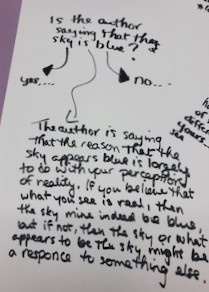 Is the author
saying that the
sky is blue?
yes....
no....
The author is saying
that the reason that the
sky appears blue is largely
to do with your perception
of reality. If you believe that
what you see is real, then
the sky mine indeed be blue,
but if not, then the sky or what
appears to be the sky might be
a responce to something else.